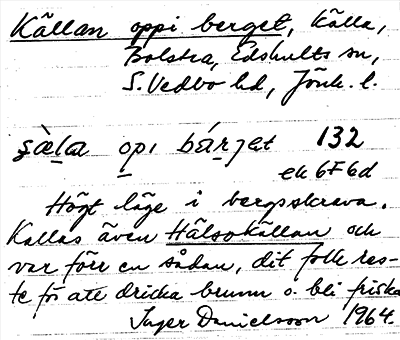 Källan oppi berget, Källa,
Bolstra, Edshults sn,
S. Vedbo hd, Jönk. l.
opi 132
ek 6F6d
Högt läge i bergsskreva.
Kallas även Hälsokällan och
var förr en sådan, dit folk res-
te för att dricka brunn o. bli friska
Inger Danielsson 1964.